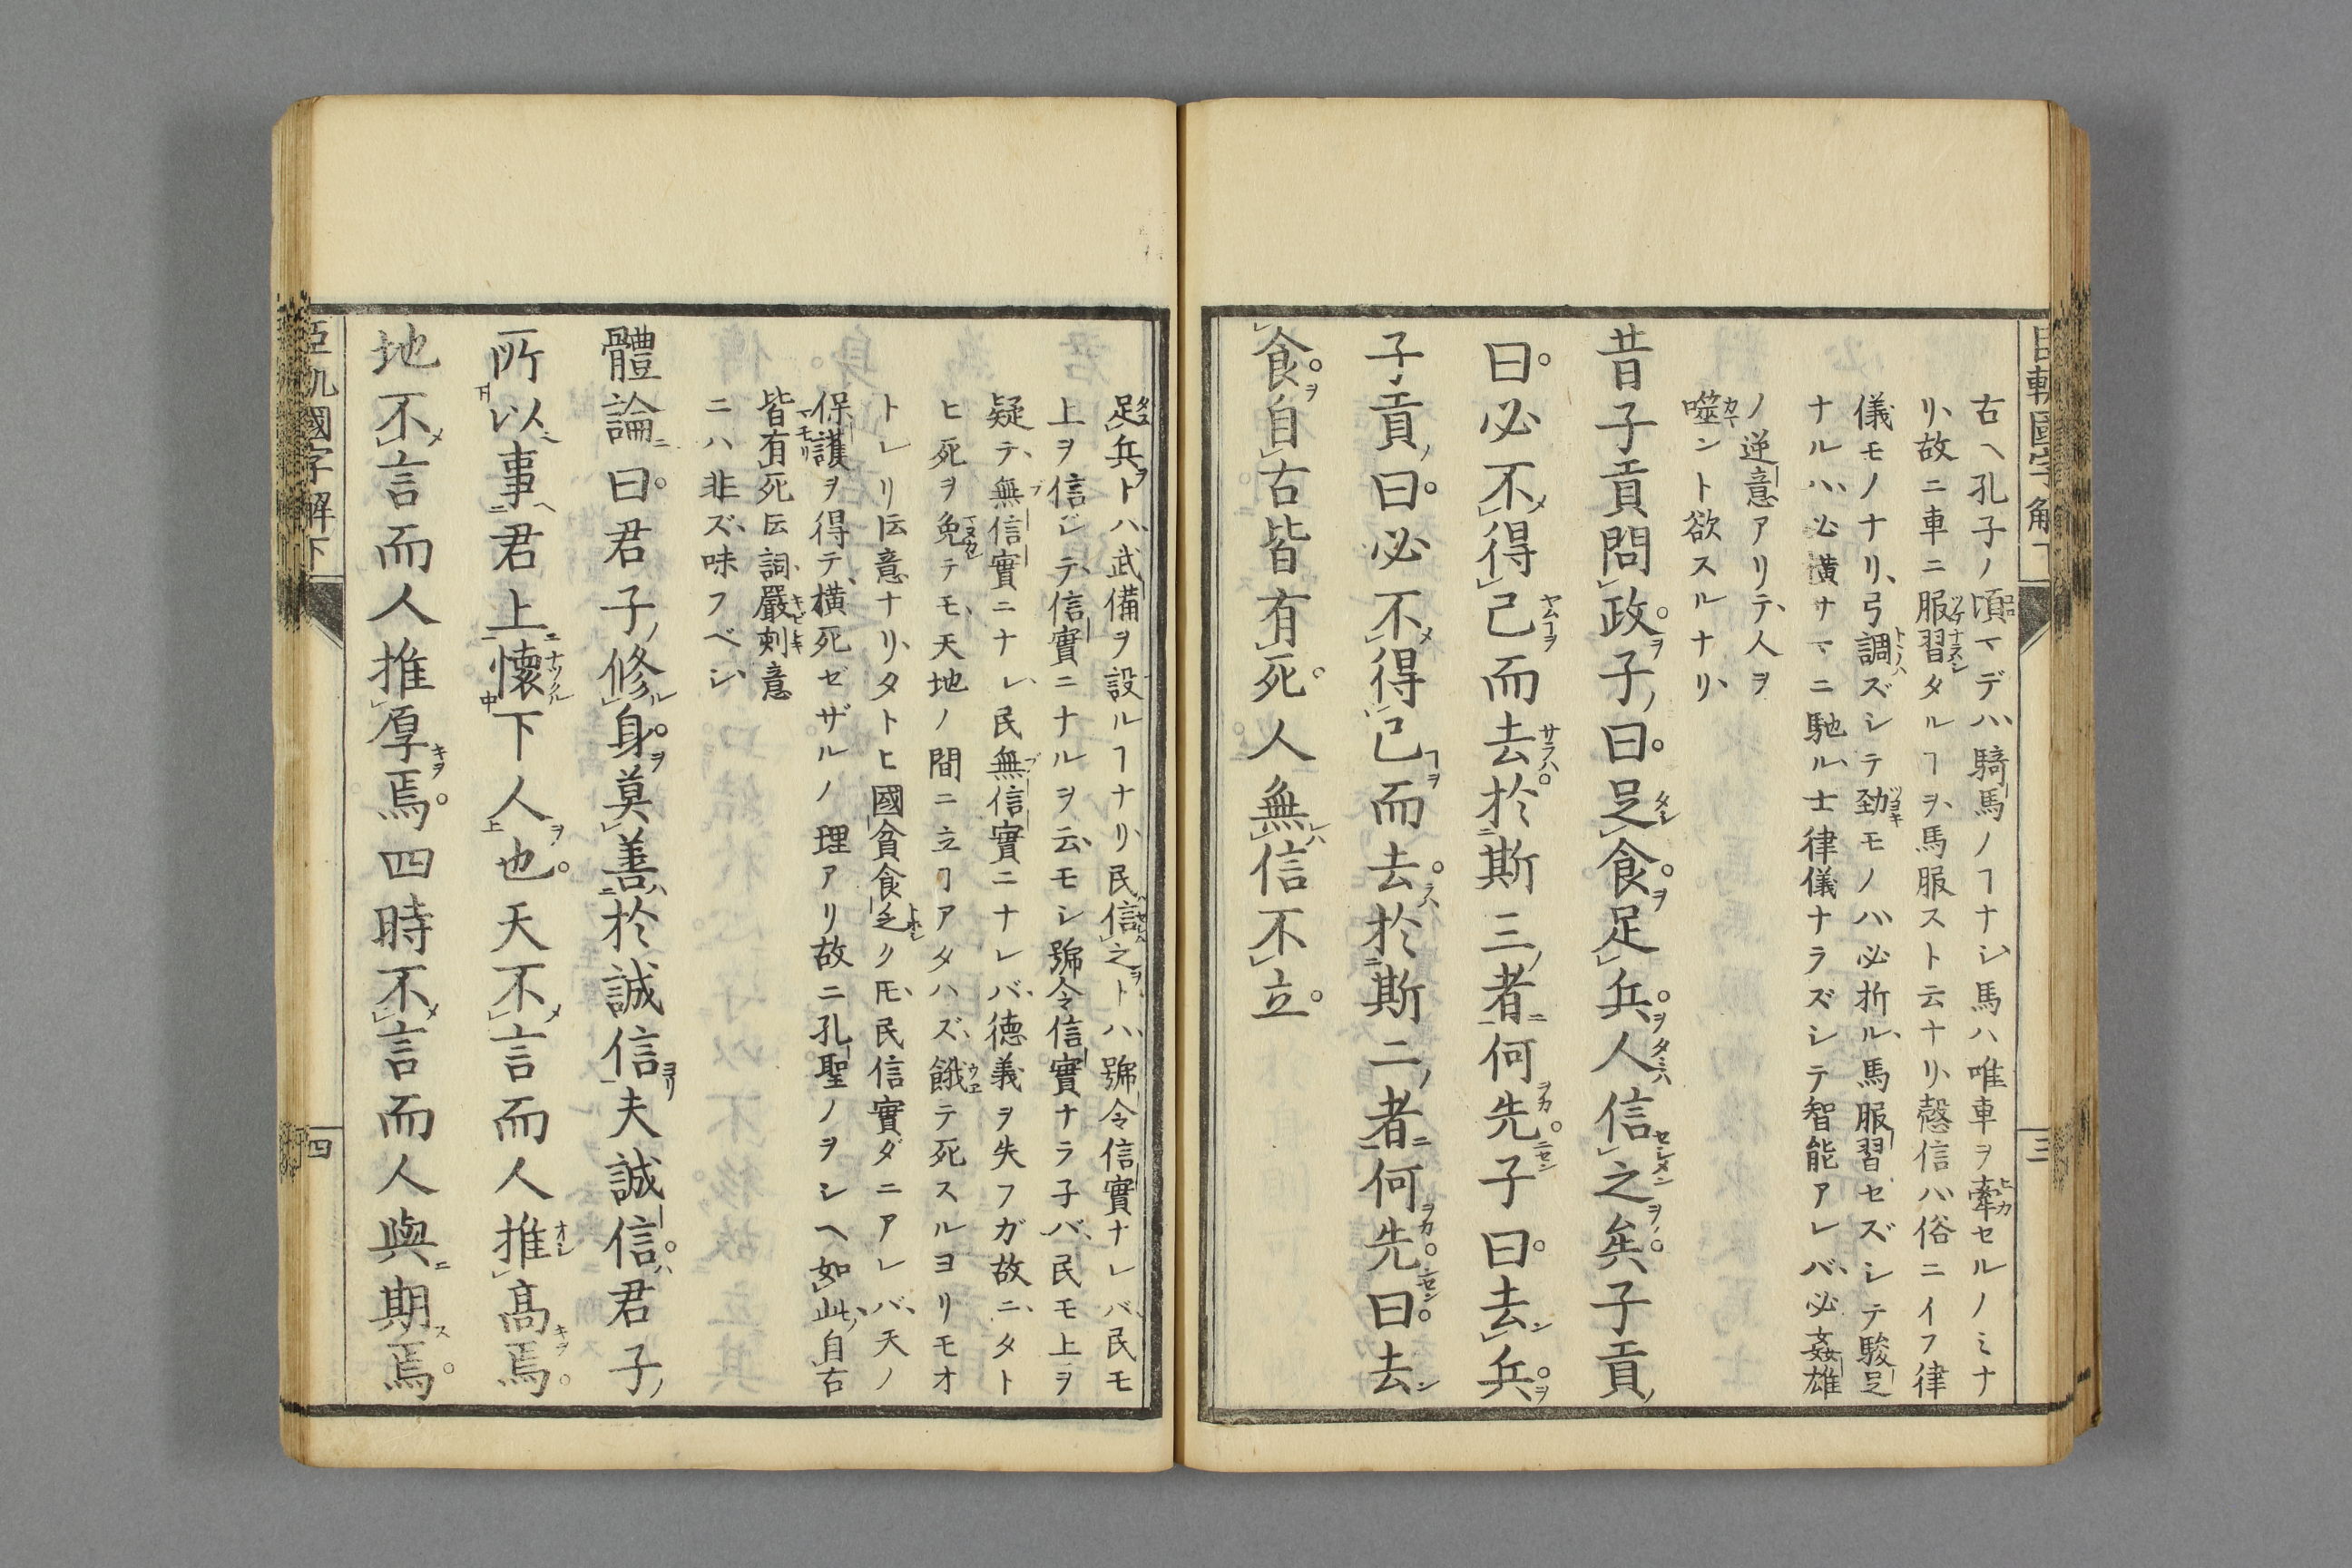 臣軌國字解下
三
右ヘ孔子ノ頃マデハ騎馬ノヿナシ馬ハ唯車ヲ牽セルノミナ
リ故ニ車ニ服習タルヿヲ馬服スト云ナリ愨信ハ俗ニイフ律
儀モノナリ弓調ズシテ勁モノハ必折ル馬服習セズシテ駿足
ナルハ必横ナマニ馳ル士律儀ナラズシテ智能アレバ必姦雄
ノ逆意アリテ人ヲ
噬ント欲スルナリ
昔子貢問政子曰足食足兵人信之矣子貢
曰必不得已而去於斯三者何先子曰去兵
子貢曰必不得已而去於斯二者何先曰去
食自古皆有死人無信不立
足兵ヲトハ武備ヲ設ルヿナリ民信之ヲトハ號令信實ナレバ民モ
上ヲ信ジテ信實ニナルヲ云モシ號令信實ナラ子バ民モ上ヲ
疑テ無信實ニナレ民無信實ニナレバ德義ヲ失フガ故ニタト
ヒ死ヲ免テモ天地ノ間ニ立ヿアタハズ餓テ死スルヨリモオ
トレリ𪜈意ナリタトヒ國貧食乏クトモ民信實ダニアレバ天ノ
保護ヲ得テ横死ゼザルノ理アリ故ニ孔聖ノヲシヘ如此自古
皆有死𪜈詞嚴刺意
ニハ非ズ味フベシ
體論曰君子修身莫善於誠信夫誠信君子
所以事君上懷下人也天不言而人推高焉
地不言而人推厚焉四時不言而人與期焉
臣軌國字解下
四